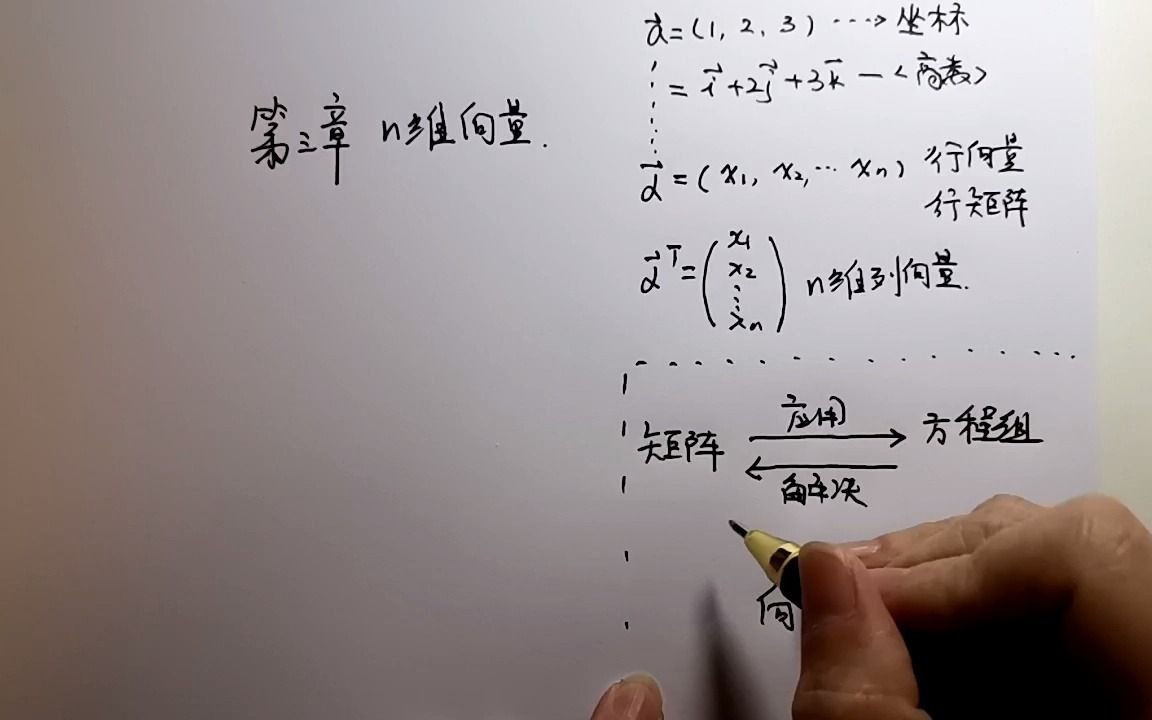 第三章 n维向量.
a⃗=(1, 2, 3) ⋯→ 坐标
= i⃗+2j⃗+3k⃗ —〈高数〉
α⃗ = (x₁, x₂,⋯ xₙ) 行向量
行矩阵
α⃗ᵀ = (x₁ x₂ ⋮ xₙ) n维列向量.
应用
矩阵 ⟶ 方程组
⟵
解决
向